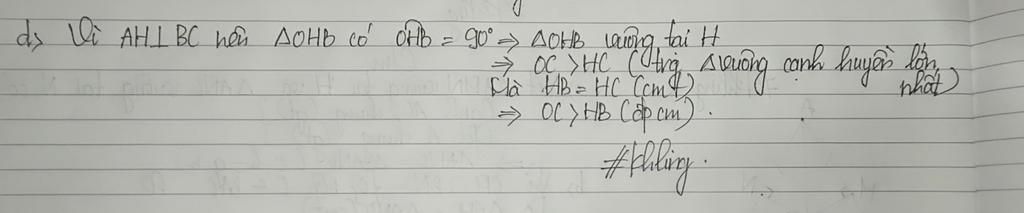 d, Vì AH⊥BC nên ΔOHB có OHB = 90° ⇒ ΔOHB vuông tại H
⇒ OC > HC (trg Δvuông cạnh huyền lớn nhất)
Mà HB = HC (cmt)
⇒ OC > HB (đpcm).
#khling.